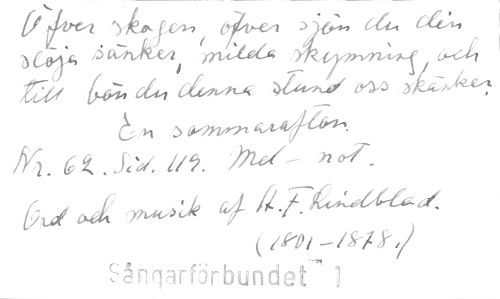 Öfver skogen, öfver sjön du din
slöja sänker, milda skymning, och
till bön du denna stund oss skänker.
En sommarafton.
Nr. 62. Sid. 119. Md – not.
Ord och musik af A. F. Lindblad.
(1801–1878.)
Sångarförbundet 1